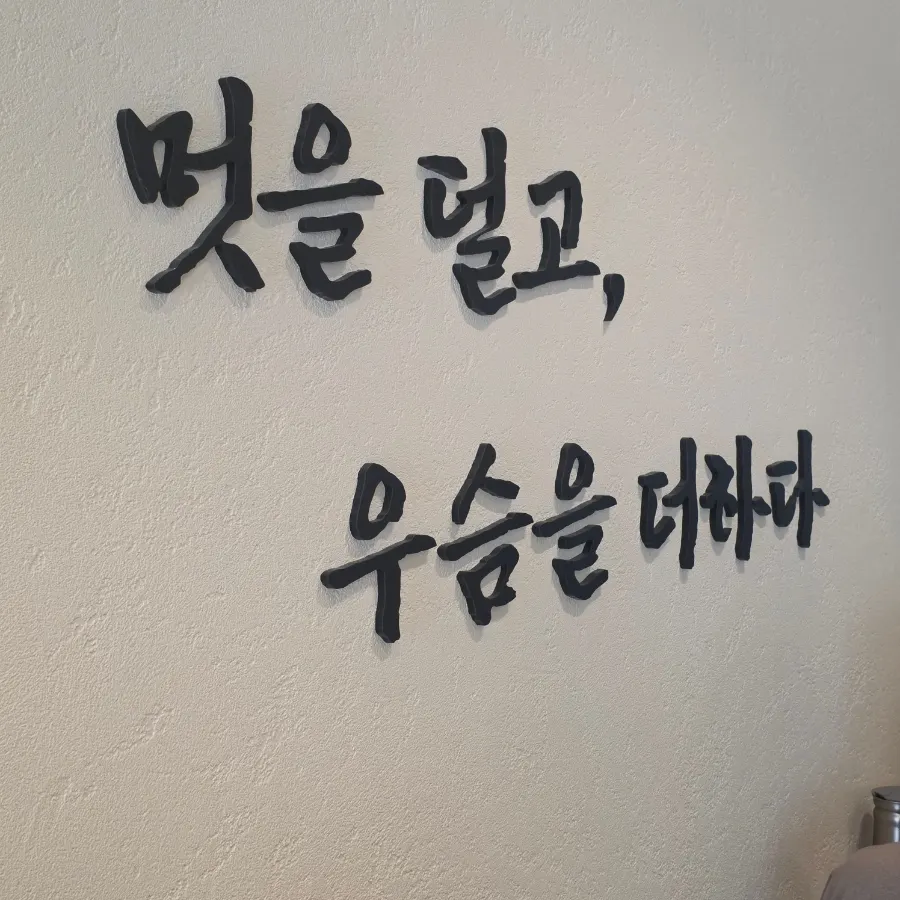 멋을 덜고,
우슴을 더하다